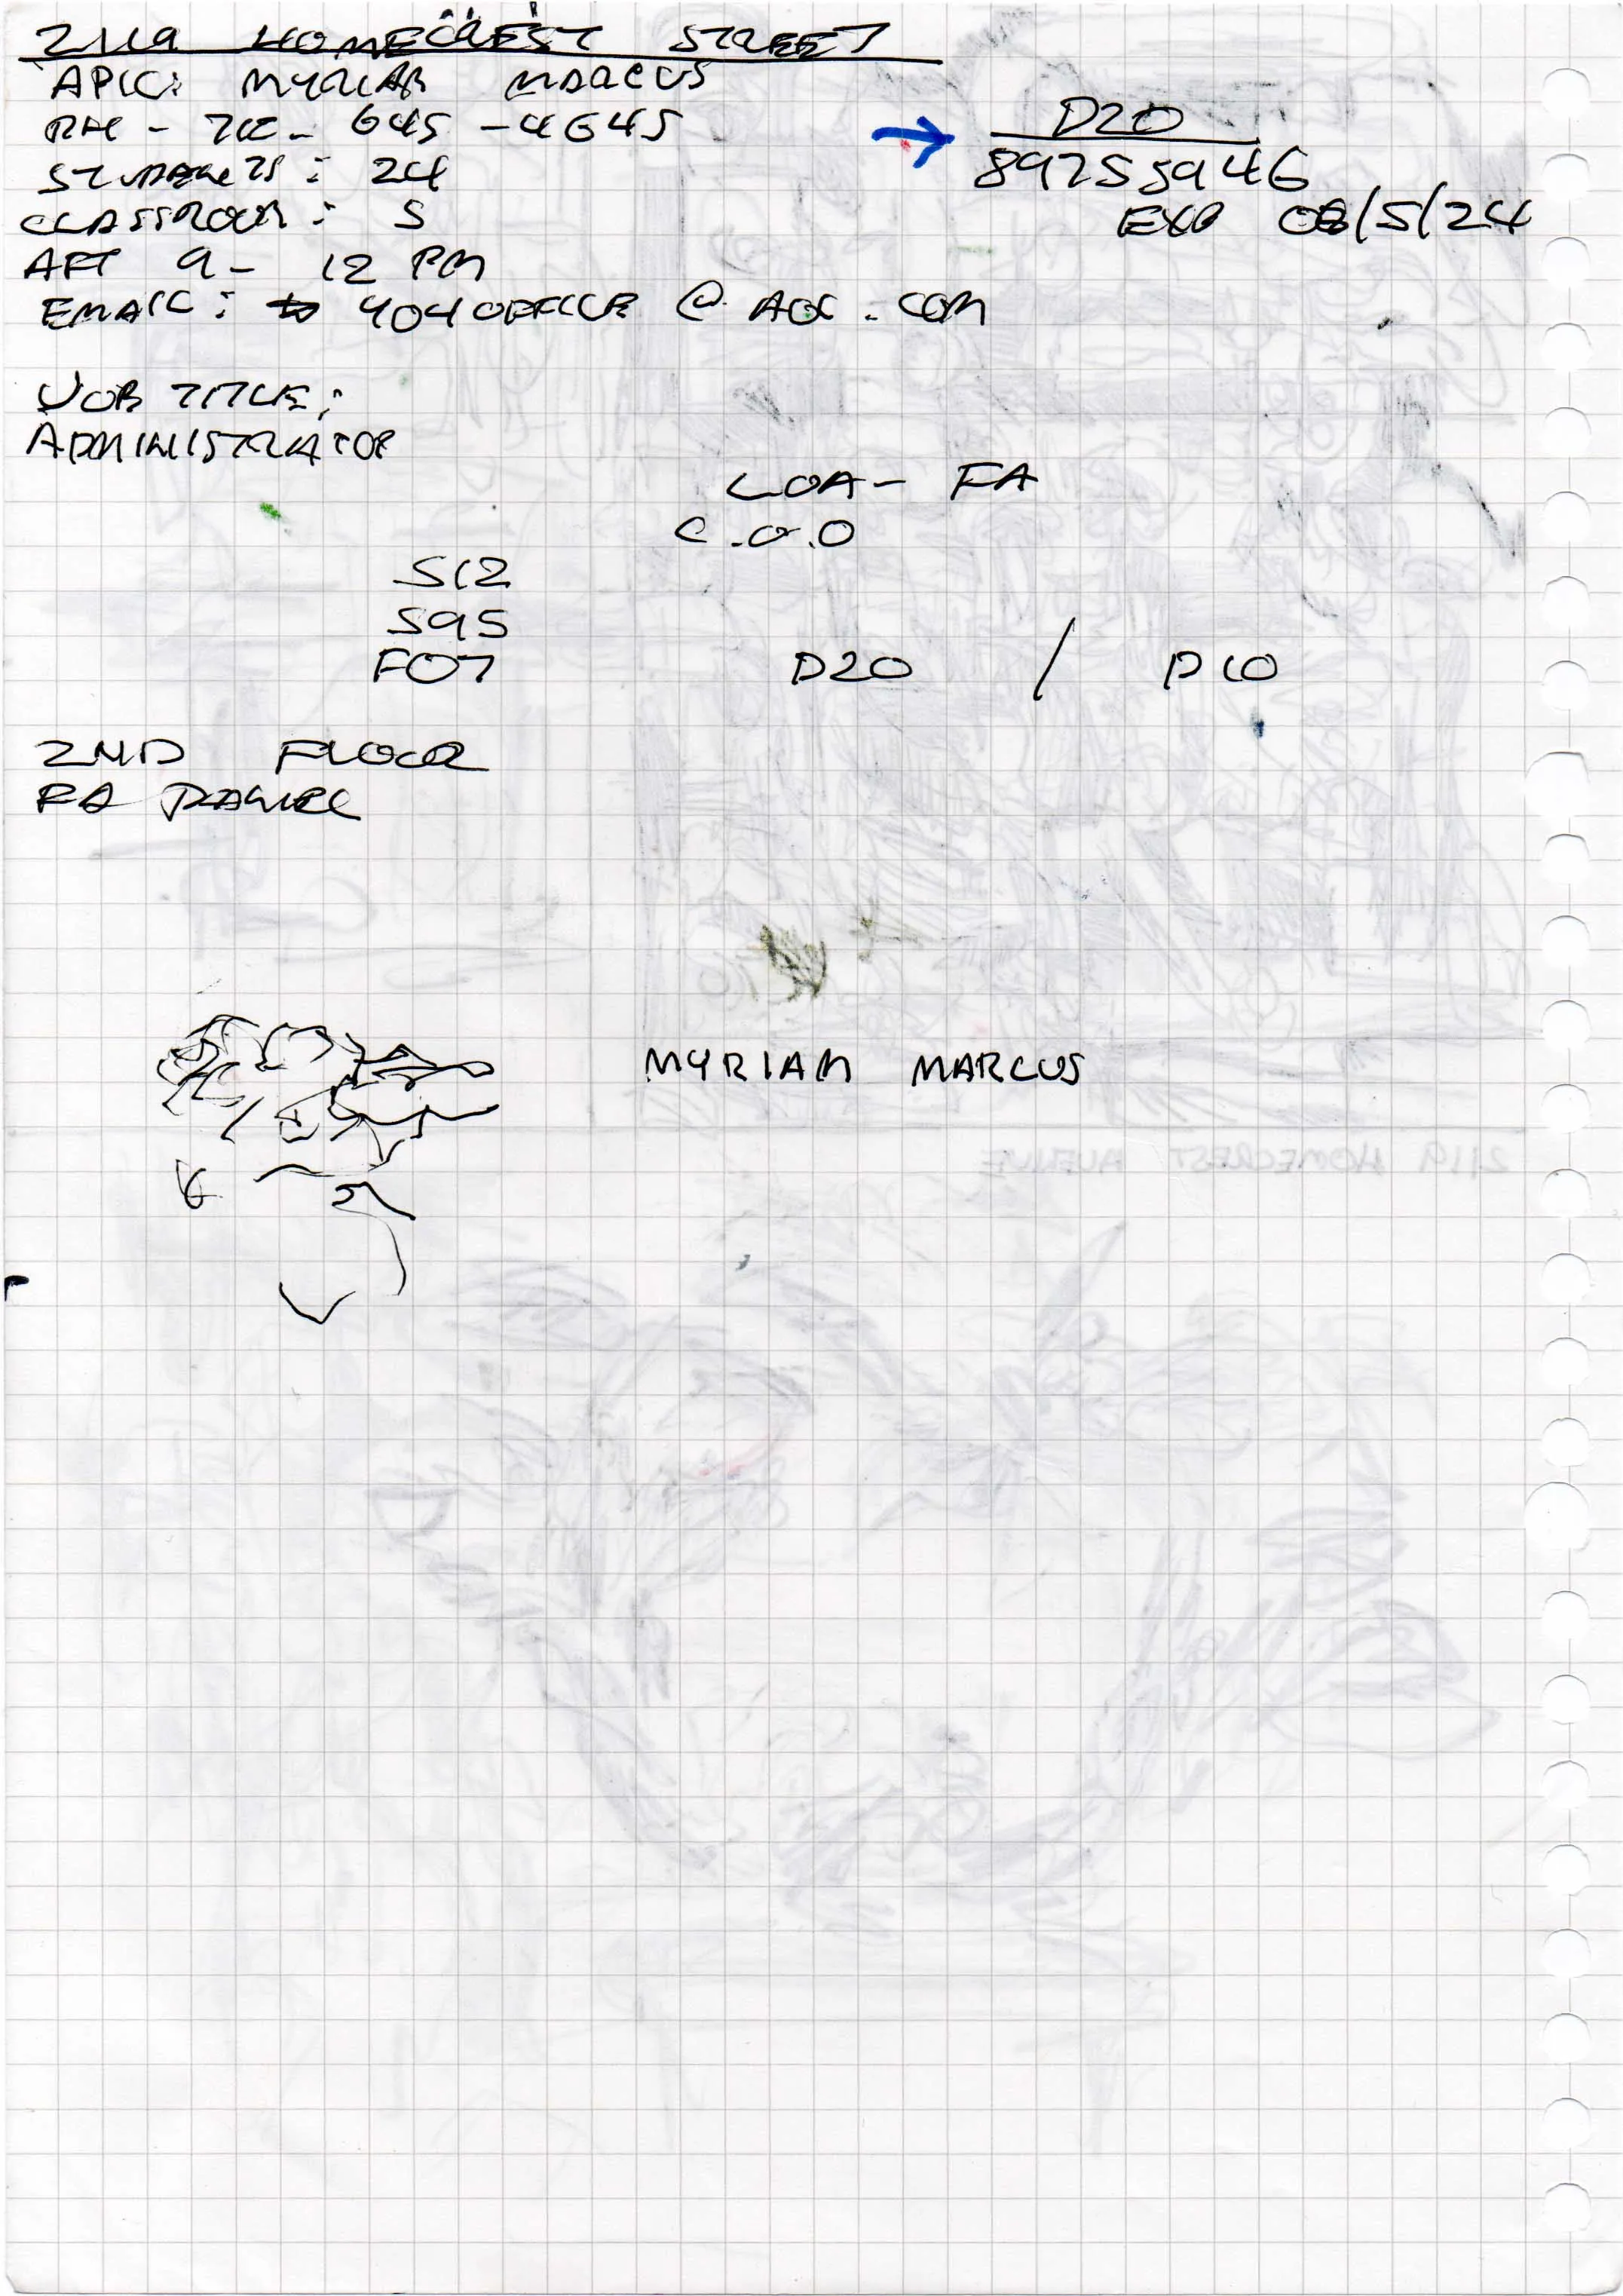 2119 HOMECREST STREET
APIC: MYRIAM MARCUS
646-4645
D20
89255946
EXP 08/5/24
STUDENTS: 24
CLASSROOM: 5
AFT 9- 12 PM
EMAIL: 404OFFICE @ AOL.COM
JOB TITLE:
ADMINISTRATOR
LOA- FA
C.O.O
S12
S95
F07 D20 / D10
2ND FLOOR
FA DANIEL
MYRIAM MARCUS
2119 HOMECREST AVENUE